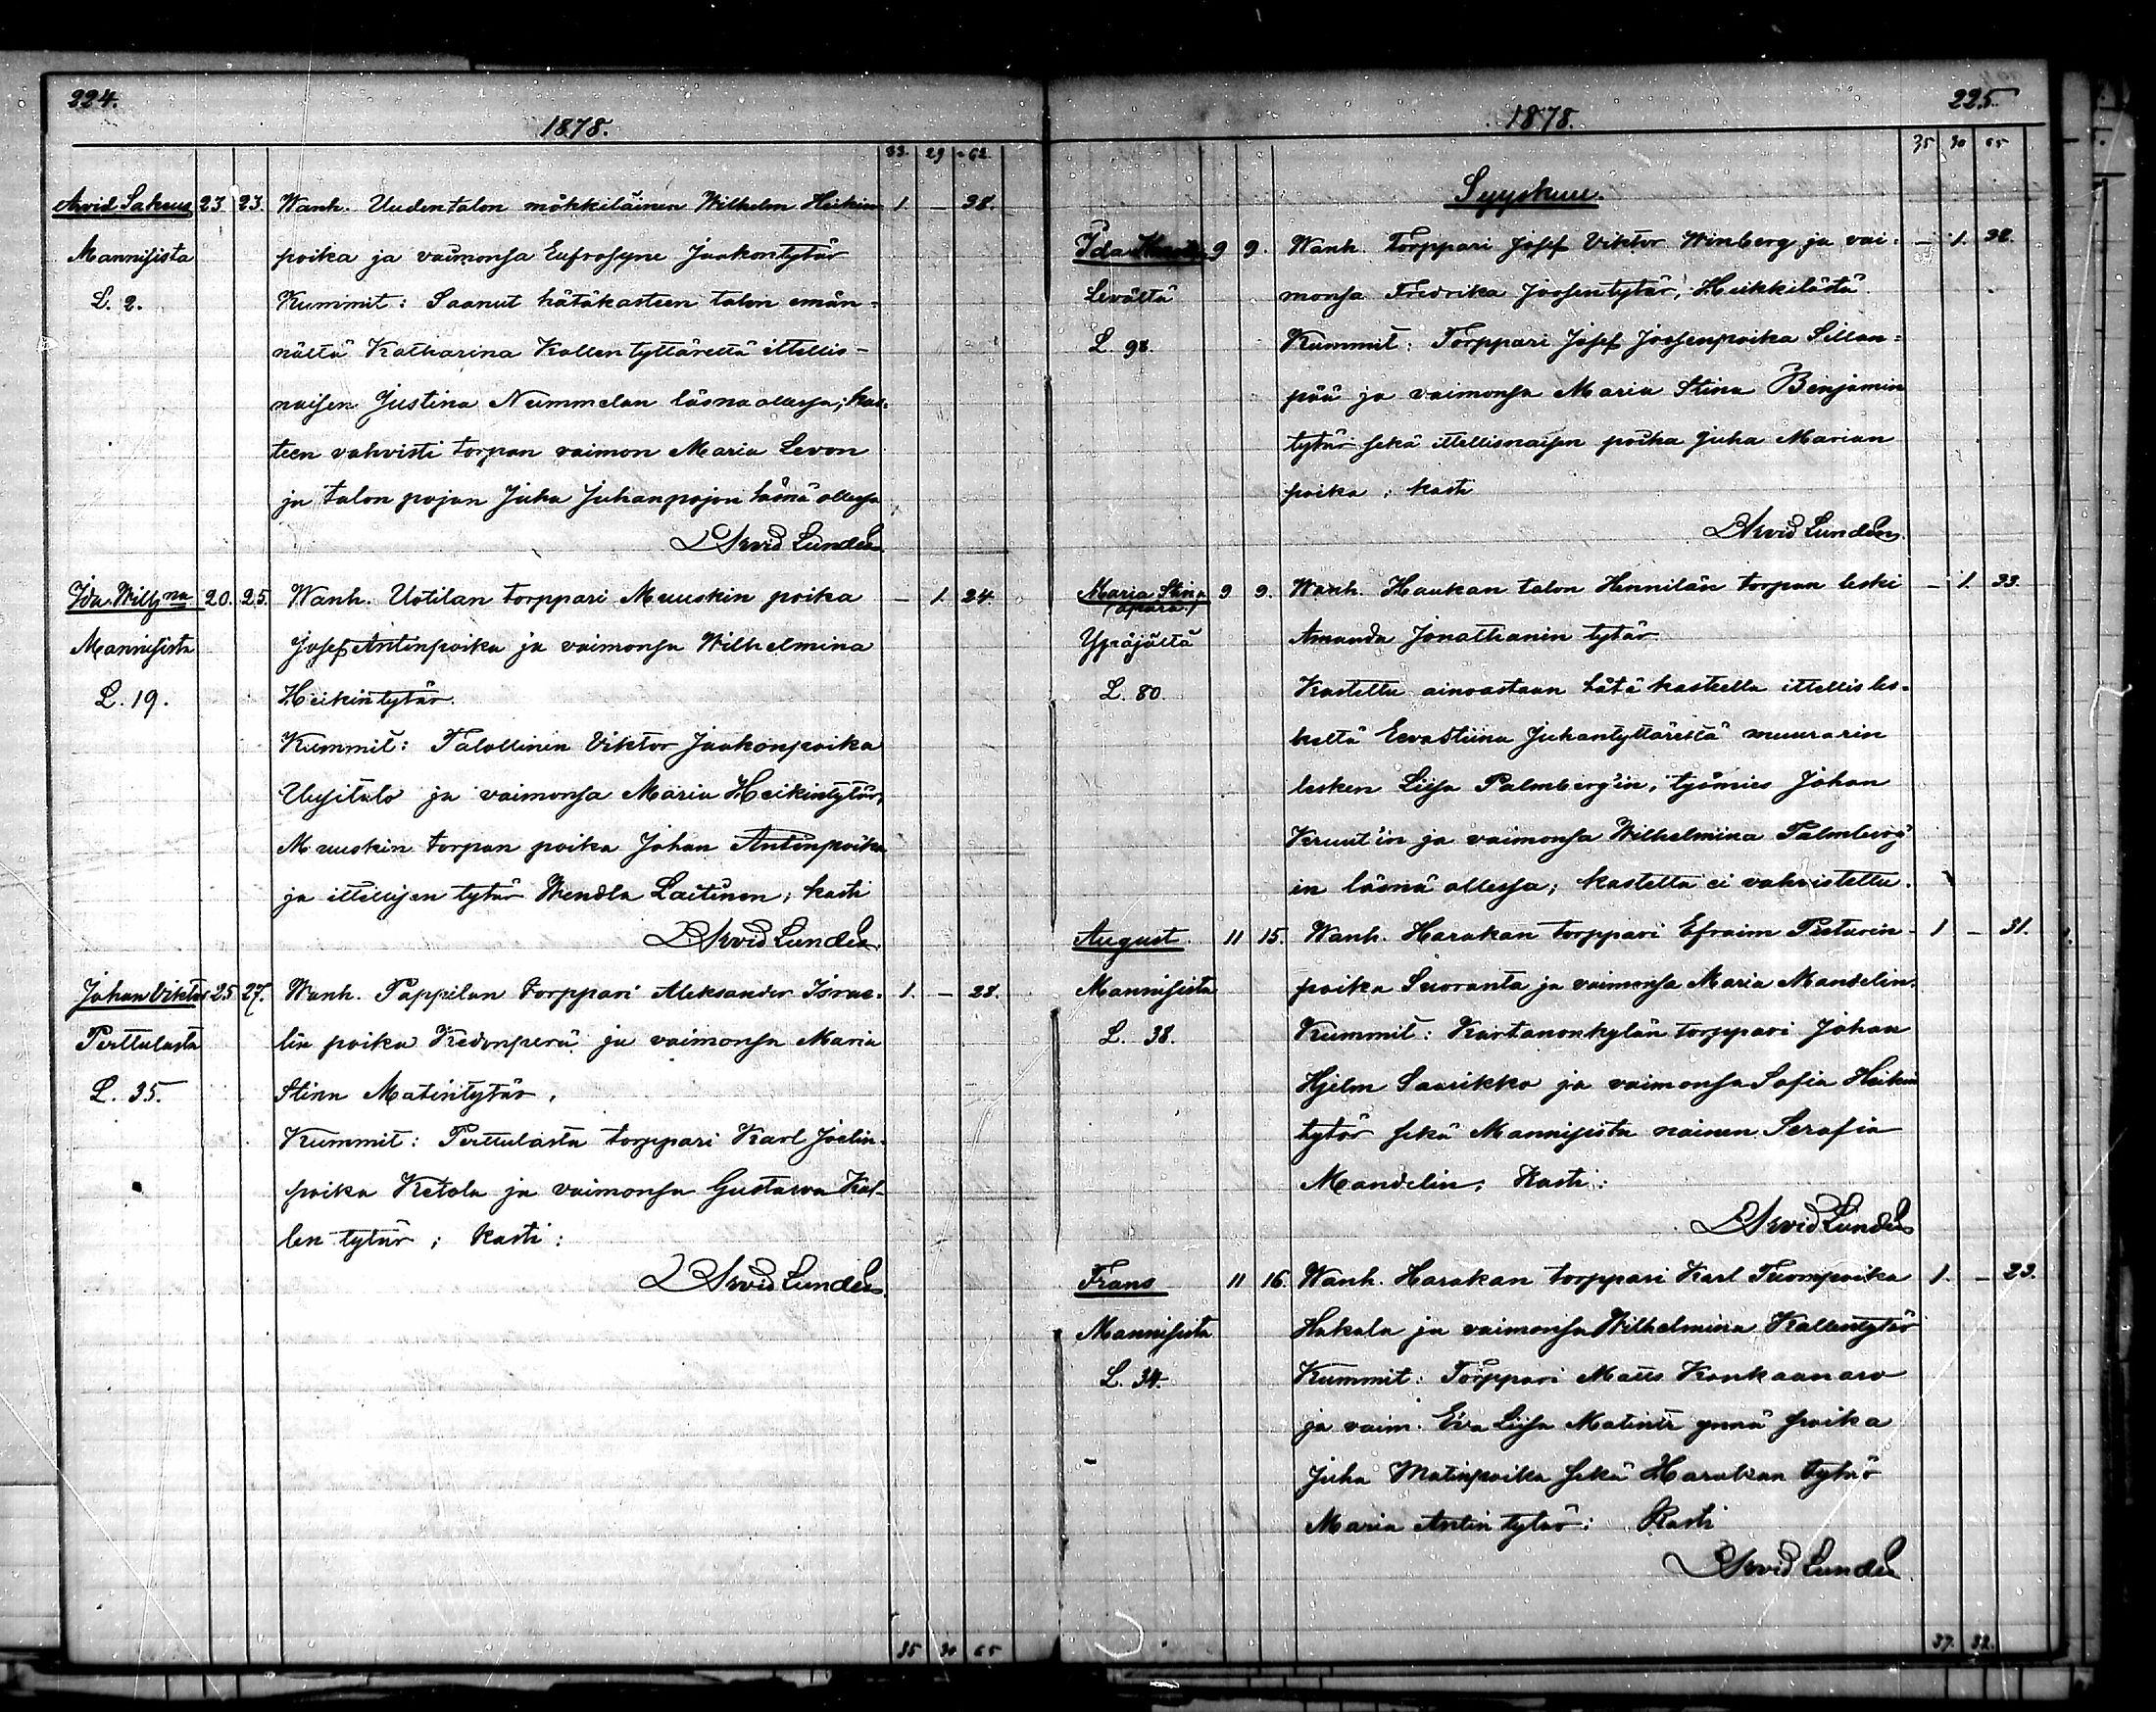 224.
1878.
33. 29 = 62.
Arvid Sakeus 23 23. Wanh. Uudentalon mökkiläinen Wilhelm Heikin 1 — 38.
Mannisista poika ja vaimonsa Eufrosyne Jaakontytär
L. 2. Kummit: Saanut hätäkasteen talon emän=
nältä Katharina Kallentyttäreltä ittellis-
naisen Justina Nummelan läsnä ollessa; kas-
teen vahvisti torpan vaimon Maria Levon
ja talon pojan Juha Juhanpojan läsnä ollessa
Arvid Lundén
Ida Wilh:na 20. 25. Wanh. Uotilan torppari Muuskin poika — 1. 24.
Mannisista Josef Antinpoika ja vaimonsa Wilhelmina
L. 19. Heikintytär.
Kummit: Talollinen Viktor Jaakonpoika
Uusitalo ja vaimonsa Maria Heikintytär,
Muuskin torpan poika Johan Antinpoika
ja ittellisen tytär Wendla Laitinen; kasti
Arvid Lundén
Johan Viktor 25 27. Wanh. Pappilan torppari Aleksander Israe- 1. — 28.
Perttulasta lin poika Kedonperä ja vaimonsa Maria
L. 35. Stina Matintytär.
Kummit: Perttulasta torppari Karl Joelin-
poika Ketola ja vaimonsa Gustawa Kal-
len tytär; kasti:
Arvid Lundén
35 30 65
225.
1878.
35 30 65
Syyskuu.
Ida 9 9. Wanh. Torppari Josef Viktor Winberg ja vai- — 1. 32.
Levältä monsa Fredrika Joosentytär, Heikkilästä
L. 98. Kummit: Torppari Josef Joosenpoika Sillan=
pää ja vaimonsa Maria Stina Benjamin
tytär sekä ittellisnaisen poika Juha Marian
poika; kasti
Arvid Lundén
Maria Stina 9 9. Wanh. Haukan talon Hennilän torpan leski — 1. 33.
(äpärä) Amanda Jonathanin tytär
Ypäjältä
L. 80. Kastettu ainoastaan hätä kasteella ittellis les-
keltä Eevastiina Juhantyttäreltä muurarin
lesken Liisa Palmberg'in, työmies Johan
Kruut'in ja vaimonsa Wilhelmina Palmberg'
in läsnä ollessa; kastetta ei vahvistettu.
August 11 15. Wanh. Harakan torppari Efraim Pietarin- 1 — 31.
Mannisista poika Suoranta ja vaimonsa Maria Mandelin.
L. 38. Kummit: Kartanonkylän torppari Johan
Hjelm Saarikko ja vaimonsa Sofia Heikin
tytär sekä Mannisista nainen Serafia
Mandelin; Kasti:
Arvid Lundén
Frans 11 16. Wanh. Harakan torppari Karl Tuompoika 1. — 23.
Mannisista Hakala ja vaimonsa Wilhelmina Kallentytär
L. 34. Kummit: Torppari Matts Konkaanaro
ja vaim. Eva Liisa Matintr ynnä poika
Juha Matinpoika sekä Harakan tytär
Maria Antin tytär; Kasti
Arvid Lundén
37. 32.